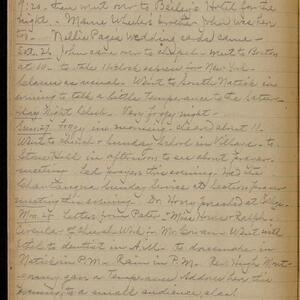 9:20. They went over to Bailey's Hotel for the
night. - Maria Wheeler's brother John was here
to - Nellie Page's wedding cards came -
Sat. 26 John came over to chapel - Went to Boston
at 10 - to take 11 o'clock for New York.
Classes as usual. Went to South Natick in
evening to talk a little temperance to the Satur-
day Night Club. Very foggy night -
Sun. 27 Foggy in morning - cleared about 11.
Went to church - Sunday School in
Stone Hall in afternoon to see about prayer
meeting - Led prayers this evening. Had the
Chautauqua Sunday Service at Section prayer
meeting this evening. Dr. Hovey preached at College.
Mon. 28 Letters from Pater - Miss Howe & Ralph -
Circular of Church Work fr. Mr. Went with
Ethel to dentist in A.M. to dressmaker in
Natick in P.M. - Rain in P.M. Rev. Hugh Mont-
gomery gave a Temperance Address here this
evening, to a small audience, glad